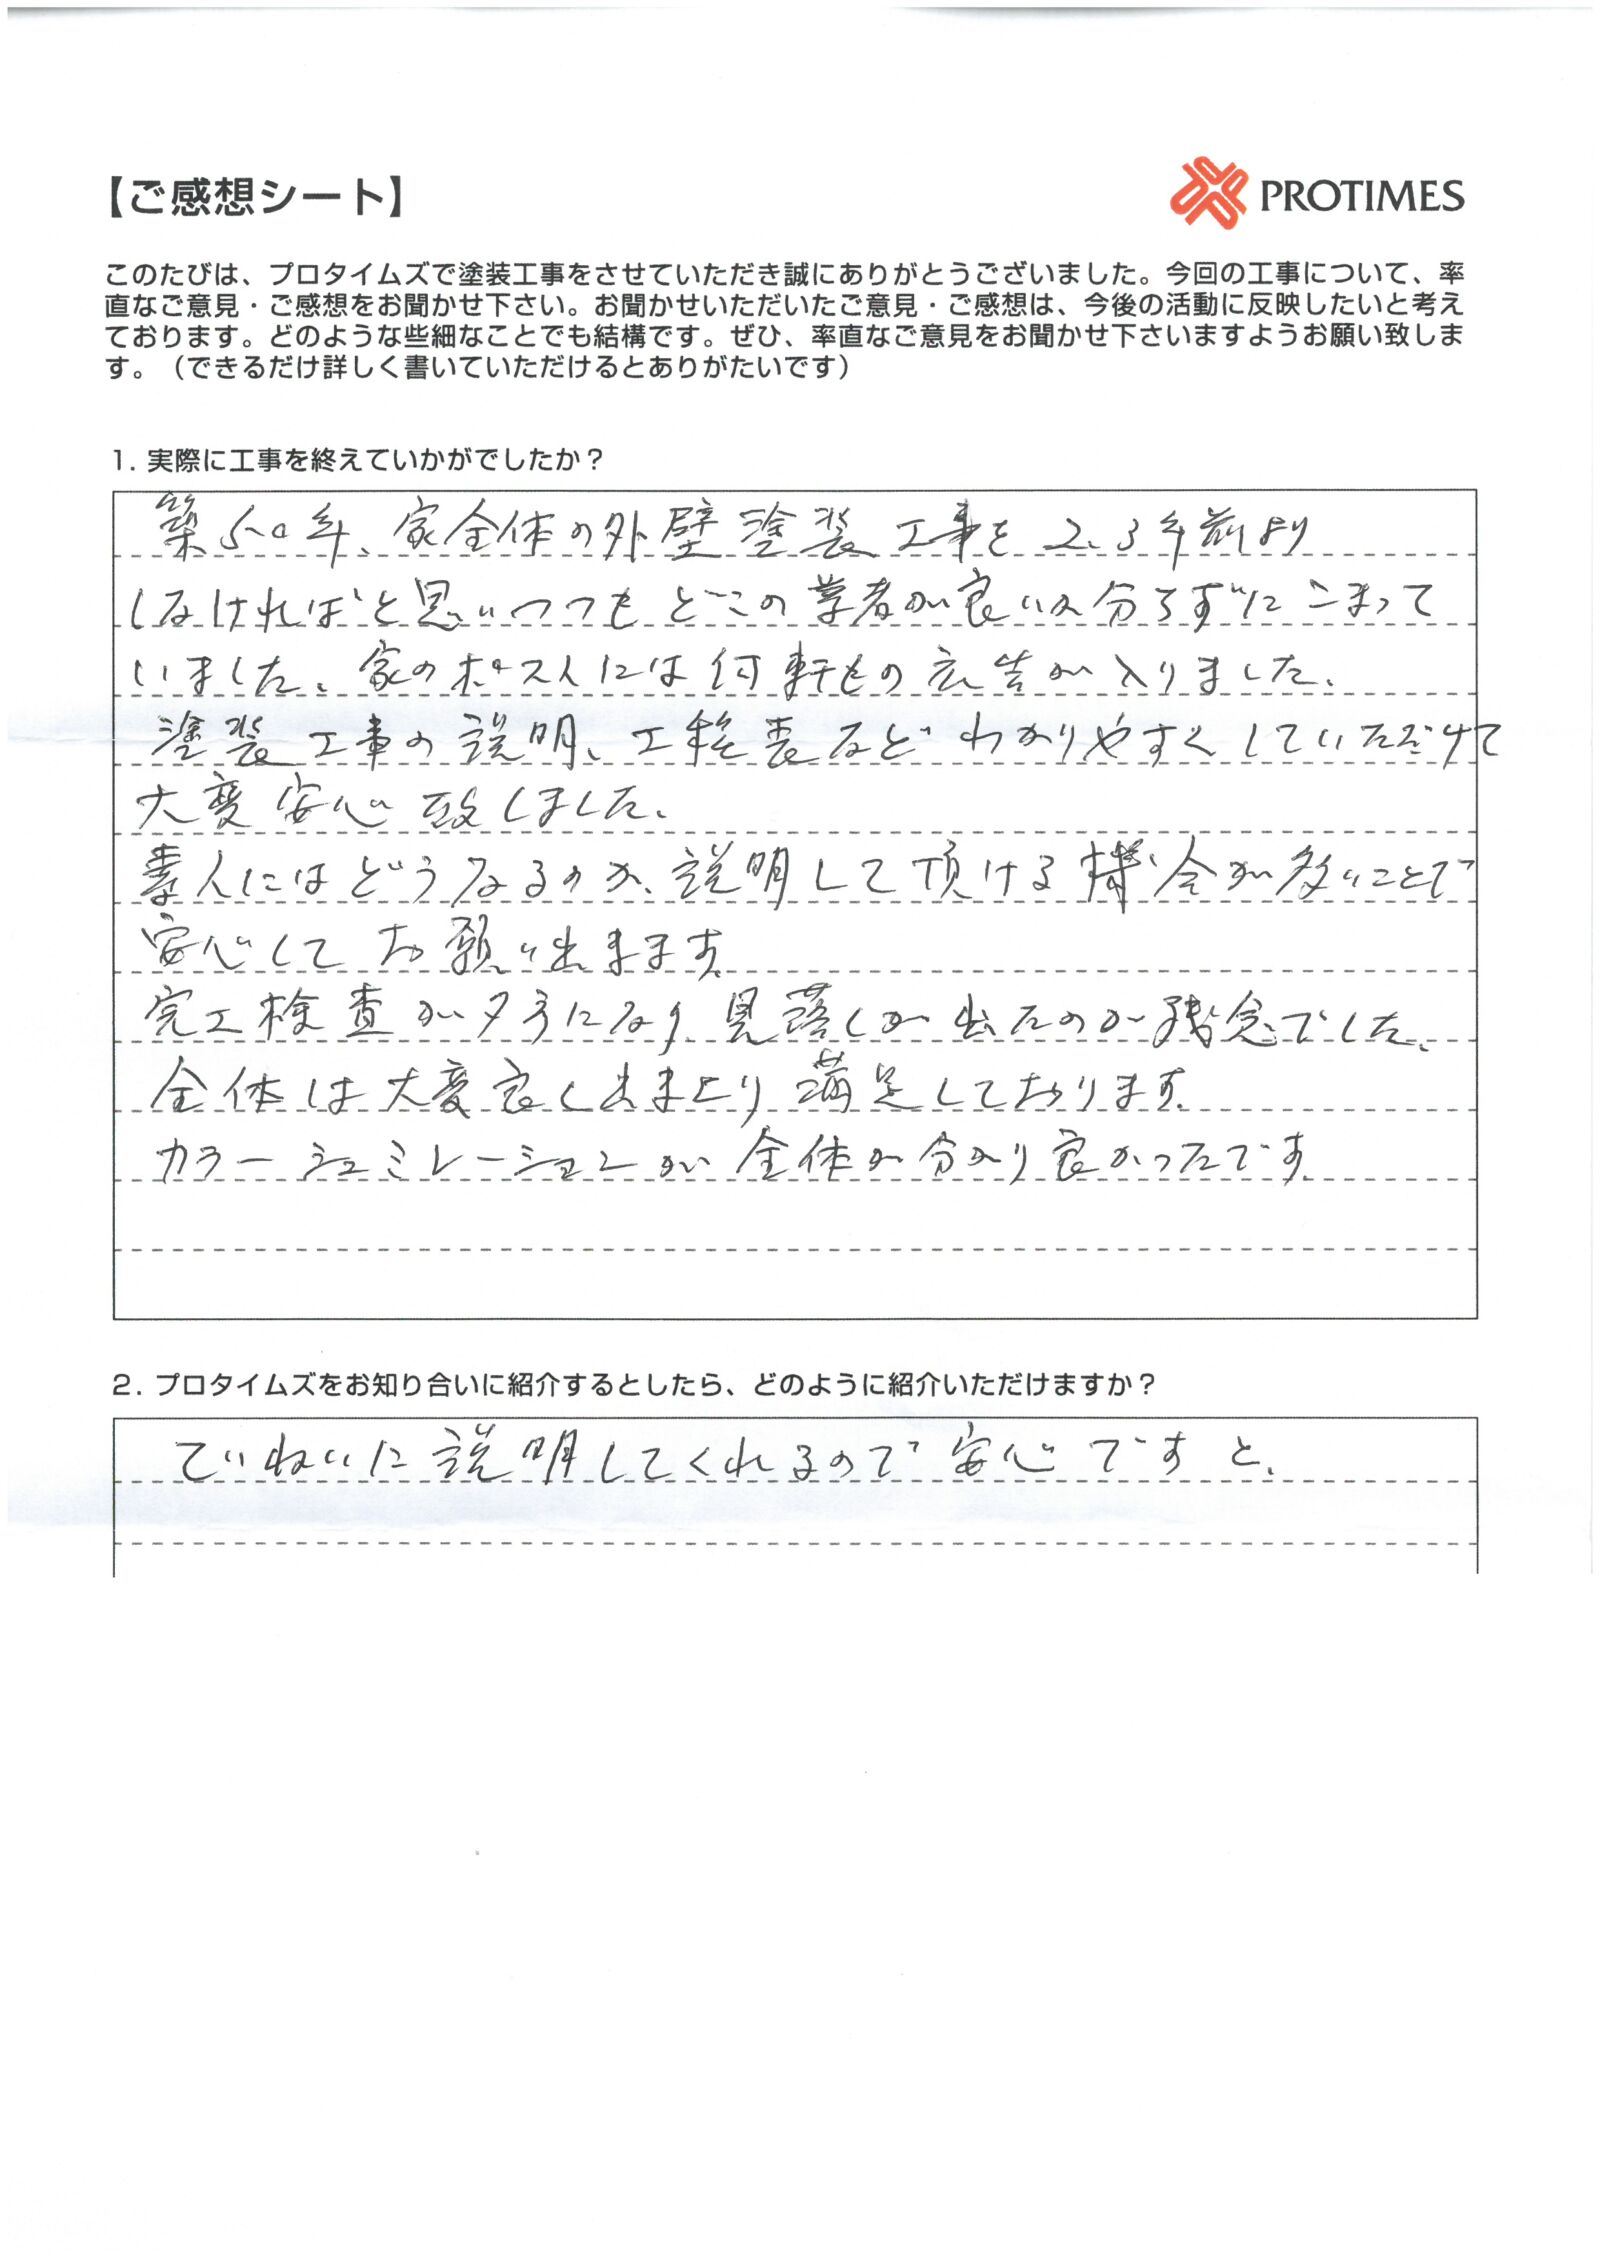 【ご感想シート】
PROTIMES
このたびは、プロタイムズで塗装工事をさせていただき誠にありがとうございました。今回の工事について、率
直なご意見・ご感想をお聞かせ下さい。お聞かせいただいたご意見・ご感想は、今後の活動に反映したいと考え
ております。どのような些細なことでも結構です。ぜひ、率直なご意見をお聞かせ下さいますようお願い致しま
す。（できるだけ詳しく書いていただけるとありがたいです）
1. 実際に工事を終えていかがでしたか？
築50年、家全体の外壁塗装工事を2、3年前より
しなければと思いつつもどこの業者が良いか分らずにこまって
いました、家のポストには何軒もの広告が入りました、
塗装工事の説明、工程表などわかりやすくしていただけて
大変安心致しました、
素人にはどうなるのか、説明して頂ける機会が多いことで
安心してお願い出来ます、
完工検査が夕方になり、見落しが出たのが残念でした、
全体は大変良く出来上り満足しております、
カラーシュミレーションが全体が分かり良かったです、
2. プロタイムズをお知り合いに紹介するとしたら、どのように紹介いただけますか？
ていねいに説明してくれるので安心ですと、